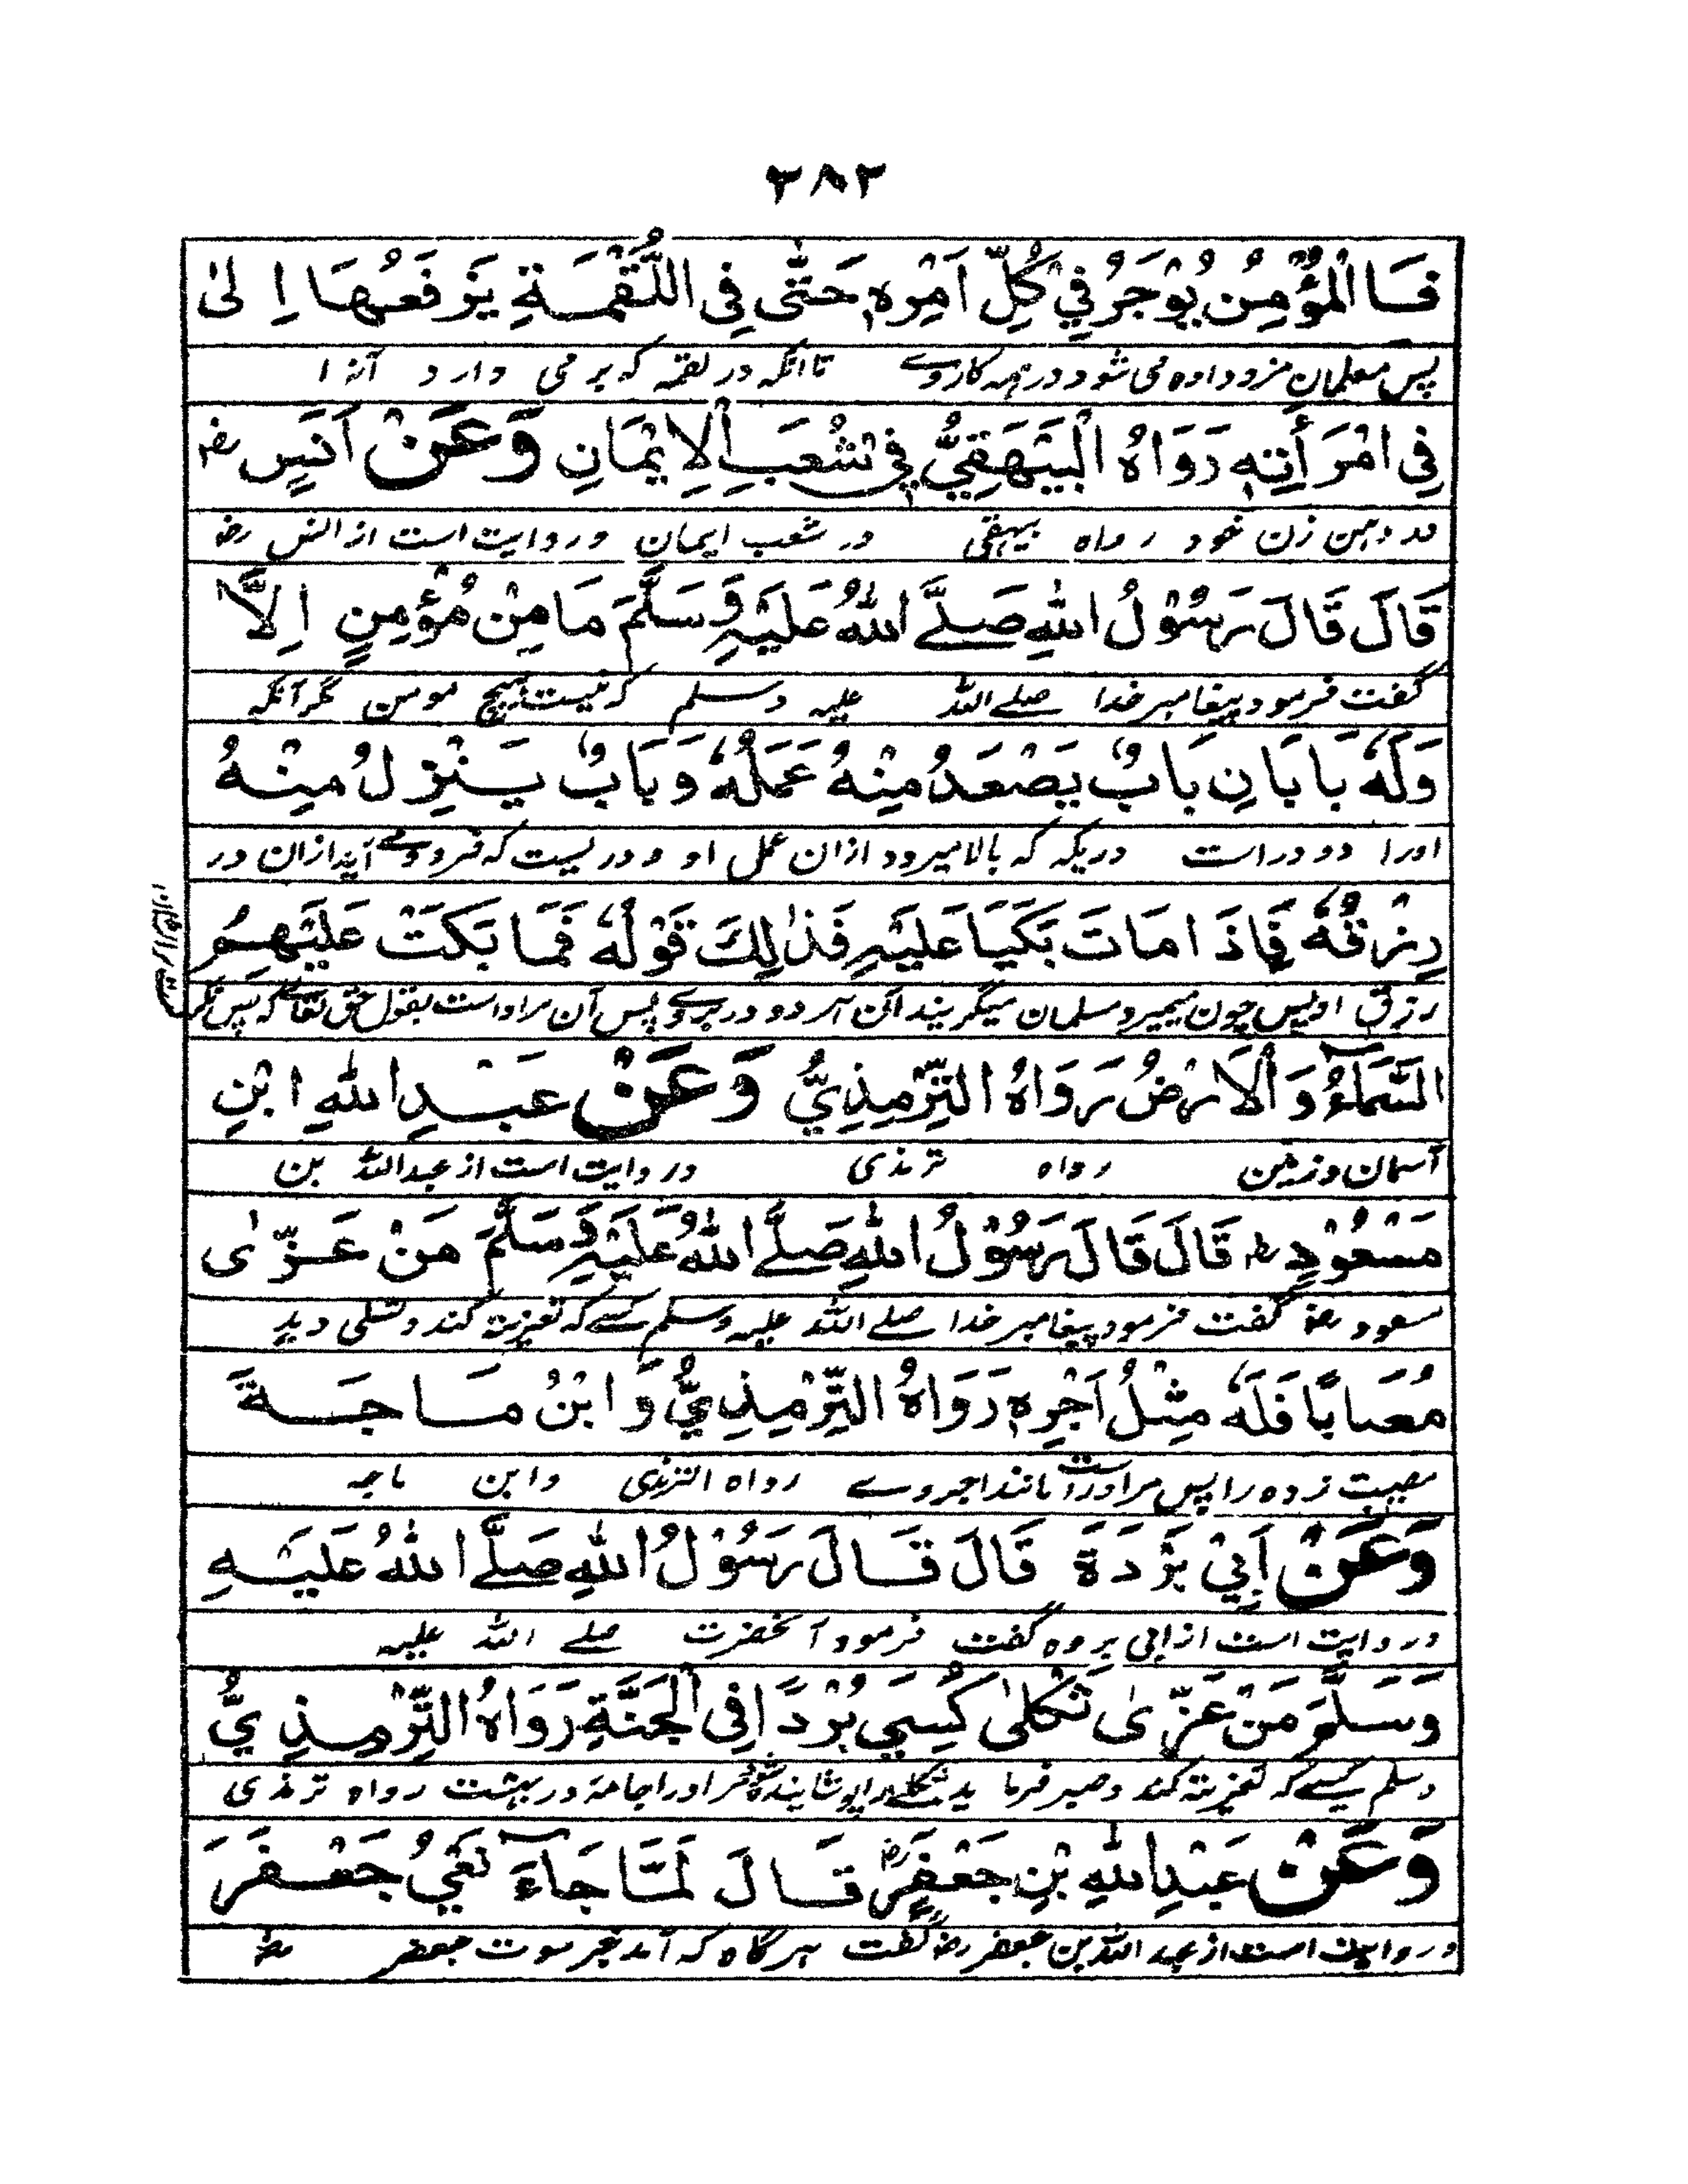 ۳۸۲
فَالْمُؤْمِنُ يُوْجَرُ فِيْ كُلِّ اَمْرِهٖ حَتّٰى فِى اللُّقْمَةِ يَرْفَعُهَا اِلٰى
پس مسلمان مزد داده می شود در همه کار وے تا آنکه در لقمه که بر می دارد آنرا
فِى امْرَأَتِهٖ رَوَاهُ الْبَيْهَقِيُّ فِيْ شُعَبِ الْاِيْمَانِ وَعَنْ اَنَسٍ رض
در دهن زن خود رواه بیهقی در شعب ایمان و روایت است از انس رض
قَالَ قَالَ رَسُوْلُ اللّٰهِ صَلَّے اللّٰهُ عَلَيْهِ وَسَلَّمَ مَا مِنْ مُؤْمِنٍ اِلَّا
گفت فرمود پیغامبر خدا صلے اللّٰه علیه وسلم که نیست هیچ مومن مگر آنکه
وَلَهٗ بَابَانِ بَابٌ يَصْعَدُ مِنْهُ عَمَلُهٗ وَبَابٌ يَنْزِلُ مِنْهُ
اورا دو در است در یکه که بالا میرود ازان عمل او و در لیست که فرود مے آید ازان در
رِزْقُهٗ فَاِذَا مَاتَ بَكَيَا عَلَيْهِ فَذٰلِكَ قَوْلُهٗ فَمَا بَكَتْ عَلَيْهِمُ
رزق او پس چون بمیرد مسلمان میگریند آن هر دو در بروے پس آن مراد است بقول حق تعالے که پس نگریست
السَّمَآءُ وَالْاَرْضُ رَوَاهُ التِّرْمِذِيُّ وَعَنْ عَبْدِ اللّٰهِ ابْنِ
آسمان و زمین رواه ترمذی و روایت است از عبد اللّٰه بن
مَسْعُوْدٍ رض قَالَ قَالَ رَسُوْلُ اللّٰهِ صَلَّے اللّٰهُ عَلَيْهِ وَسَلَّمَ مَنْ عَزّٰى
مسعود رض گفت فرمود پیغامبر خدا صلے اللّٰه علیه وسلم کسے که تعزیت کند و تسلی دہد
مُصَابًا فَلَهٗ مِثْلُ اَجْرِهٖ رَوَاهُ التِّرْمِذِيُّ وَابْنُ مَاجَةَ
مصیبت زده را پس مر اورا است مانند اجر وے رواه الترمذی وابن ماجه
وَعَنْ اَبِيْ بَرْدَةَ قَالَ قَالَ رَسُوْلُ اللّٰهِ صَلَّے اللّٰهُ عَلَيْهِ
و روایت است از ابی برده گفت فرمود آنحضرت صلے اللّٰه علیه
وَسَلَّمَ مَنْ عَزّٰى ثَكْلٰى كُسِيَ بُرْدًا فِى الْجَنَّةِ رَوَاهُ التِّرْمِذِيُّ
وسلم کسے که تعزیت کند و صبر فرماید ثکلے را پوشانیده شود مر اورا جامۂ در بهشت رواه ترمذی
وَعَنْ عَبْدِ اللّٰهِ بْنِ جَعْفَرٍ رض قَالَ لَمَّا جَآءَ نَعْيُ جَعْفَرَ
و روایت است از عبد اللّٰه بن جعفر رض گفت هر گاه که آمد خبر موت جعفر رض